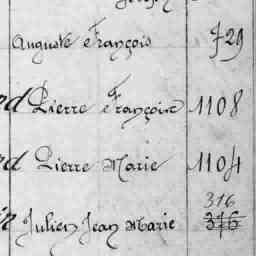 Auguste François 729
d Pierre Françoise 1108
d Pierre Marie 1104
316
Julien Jean Marie 316